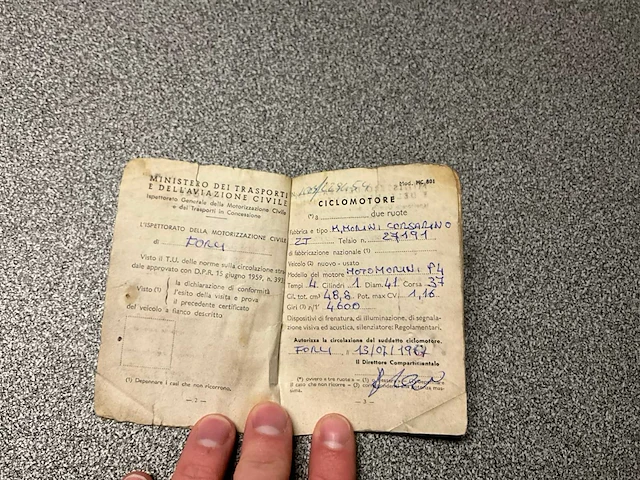 MINISTERO DEI TRASPORTI
E DELL'AVIAZIONE CIVILE
Ispettorato Generale della Motorizzazione Civile
e dei Trasporti in Concessione
L'ISPETTORATO DELLA MOTORIZZAZIONE CIVILE
di FORLÌ
Visto il T.U. delle norme sulla circolazione stra
dale approvato con D.P.R. 15 giugno 1959, n. 393
Visto (1)
la dichiarazione di conformità
l'esito della visita e prova
il precedente certificato
del veicolo a fianco descritto
(1) Depennare i casi che non ricorrono.
— 2 —
Mod. MC 801
CICLOMOTORE
(*) a due ruote
Fabbrica e tipo M. MORINI CORSARINO
ZT Telaio n. 27191
di fabbricazione nazionale (1)
Veicolo (2) nuovo - usato
Modello del motore MOTOMORINI P4
Tempi 4 Cilindri 1 Diam. 41 Corsa 37
Cil. tot. cm³ 48,8 Pot. max CV 1,16
Giri (3) n/1' 4600
Dispositivi di frenatura, di illuminazione, di segnala-
zione visiva ed acustica, silenziatore: Regolamentari.
Autorizza la circolazione del suddetto ciclomotore.
FORLÌ lì 13/07/1967
Il Direttore Compartimentale
(*) ovvero a tre ruote
il caso che non ricorre — (3)
sima.
— 3 —